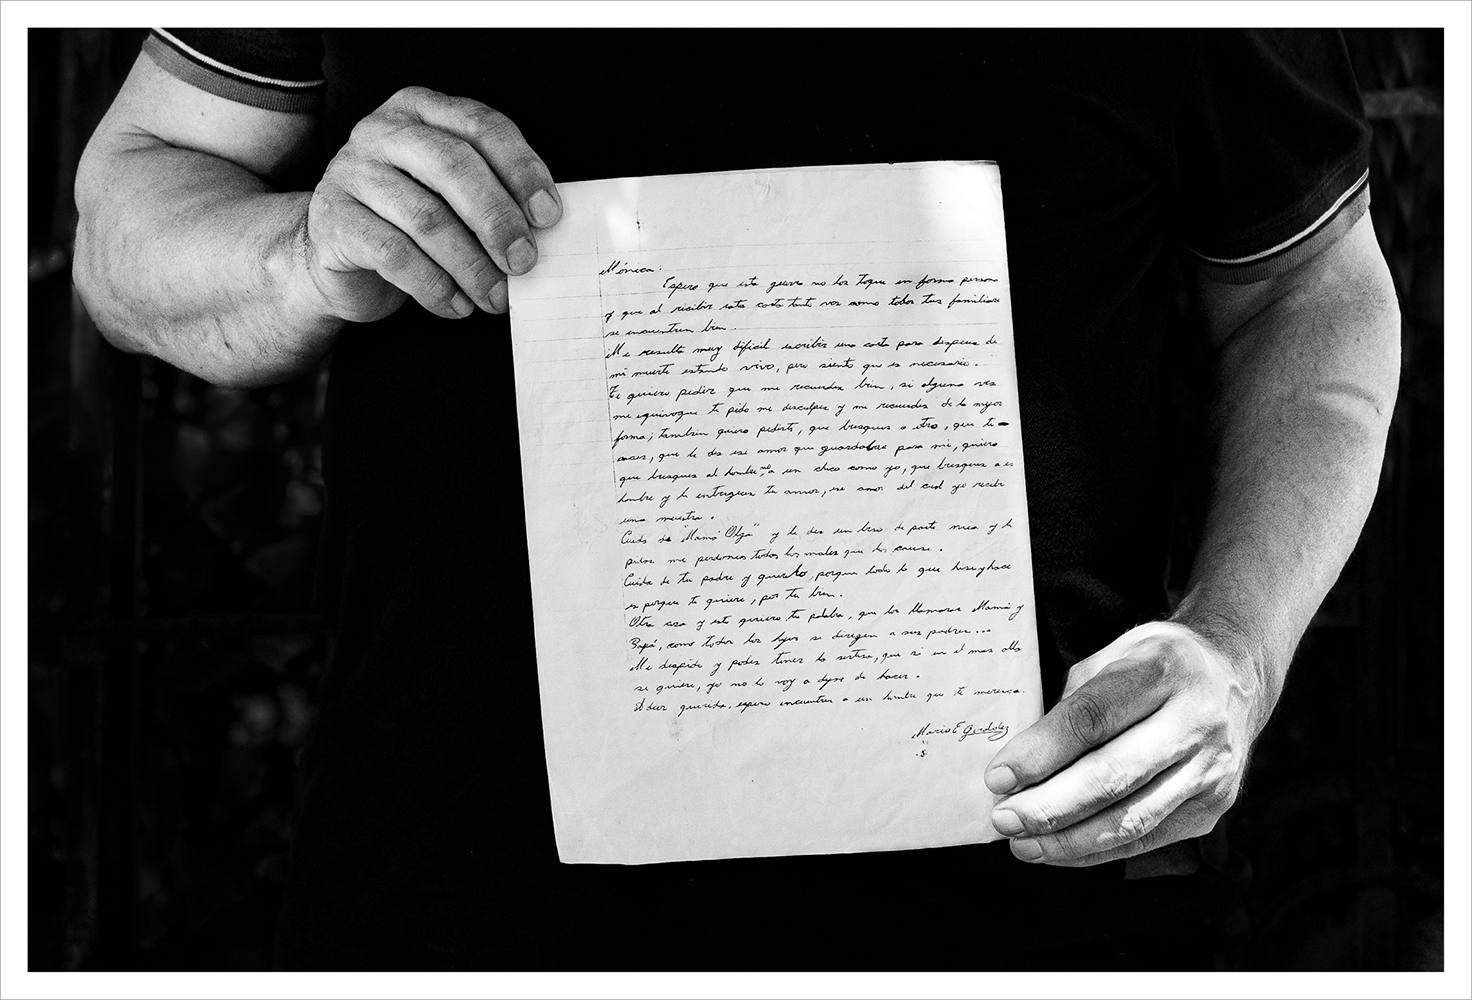 Mónica:
Espero que esta guerra no los toque en forma person
y que al recibir esta carta tanto vos como todos tus familiares
se encuentren bien.
Me resulta muy dificil escribir una carta para despues de
mi muerte estando vivo, pero siento que es necesario.
Te quiero pedir que me recuerdes bien, si alguna vez
me equivoque te pido me disculpes y me recuerdes de la mejor
forma; tambien quiero pedirte, que busques a otro, que te
cases, que le des ese amor que guardabas para mi, quiero
que busques al hombre, no a un chico como yo, que busques a es
hombre y le entregues tu amor, ese amor del cual yo recibi
una muestra.
Cuida de "Mamá Olga" y le des un beso de parte mia y le
pidas me perdones todos los males que les cause.
Cuida de tu padre y querelo, porque todo lo que hiso y hace
es porque te quiere, por tu bien.
Otra cosa y esto quiero tu palabra, que los llamaras Mamá y
Papá, como todos los hijos se dirigen a sus padres...
Me despido y podes tener la certesa, que si en el mas alla
se quiere, yo no lo voy a dejar de hacer.
Adios querida, espero encuentres a un hombre que te meresca.
Mario E